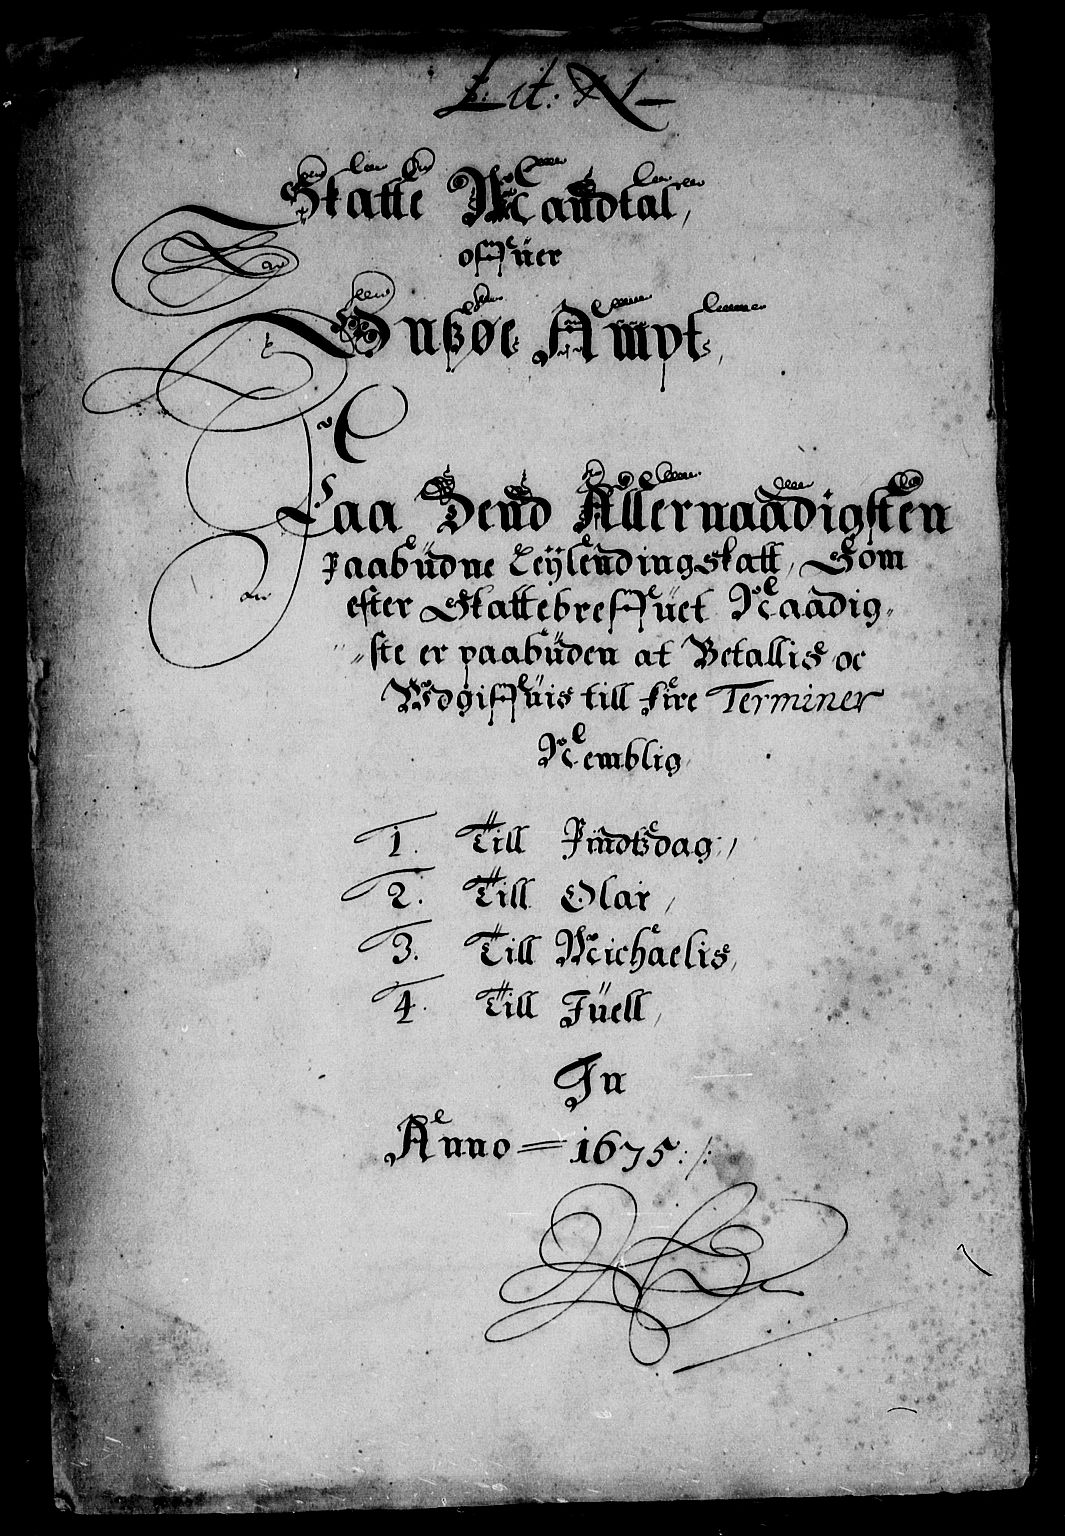 Lit: N 1
Skatte Mandtal,
offüer
Onsøe Ampt,
Paa Dend Allernaadigsten
Paabüdne Leÿlendingskatt, Som
efter Skattebreffüet Naadig-
ste er paabüden at Betallis oc
Udgiffüis till fire Terminer
Nemblig
1. Till Pindtzdag,
2. Till Olai,
3. Till Michaelis,
4. Till Jüell,
In
Anno = 1675:/: